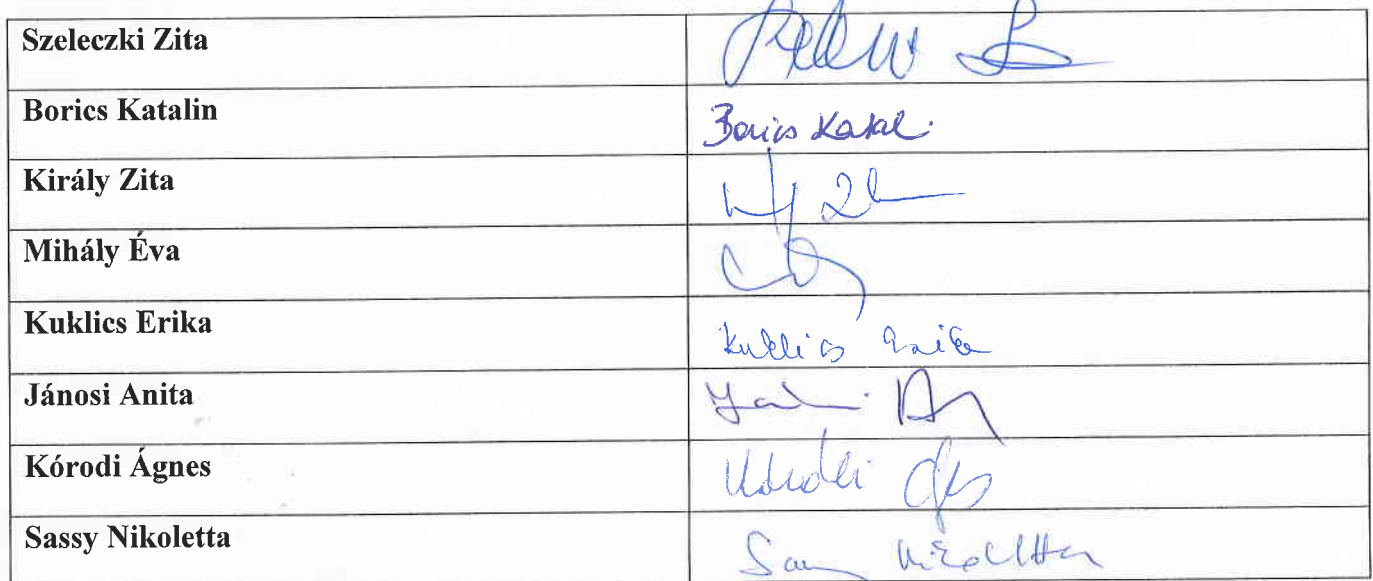 Szeleczki Zita
Borics Katalin Borics Katal.
Király Zita
Mihály Éva
Kuklics Erika Kuklics Erika
Jánosi Anita
Kórodi Ágnes Kórodi
Sassy Nikoletta Sassy Nikoletta